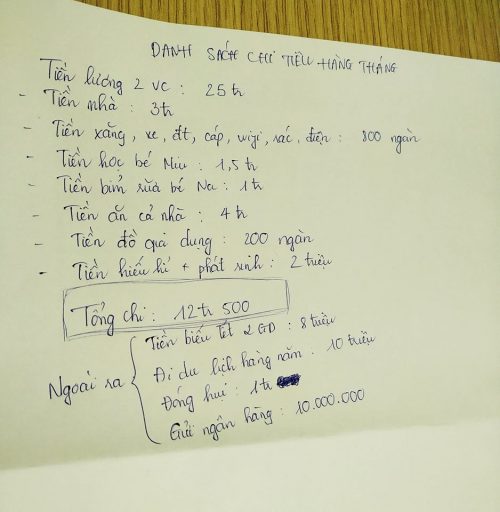 DANH SÁCH CHI TIÊU HÀNG THÁNG
Tiền lương 2 vc : 25 tr
- Tiền nhà : 3tr
- Tiền xăng, xe, đt, cáp, wifi, rác, điện : 800 ngàn
- Tiền học bé Miu : 1,5 tr
- Tiền bỉm sữa bé Na : 1 tr
- Tiền ăn cả nhà : 4 tr
- Tiền đồ gia dụng : 200 ngàn
- Tiền hiếu hỉ + phát sinh : 2 triệu
Tổng chi : 12 tr 500
Ngoài ra
Tiền biếu tết 2 GĐ : 8 triệu
Đi du lịch hàng năm : 10 triệu
Đóng hụi : 1 tr
Gửi ngân hàng : 10.000.000